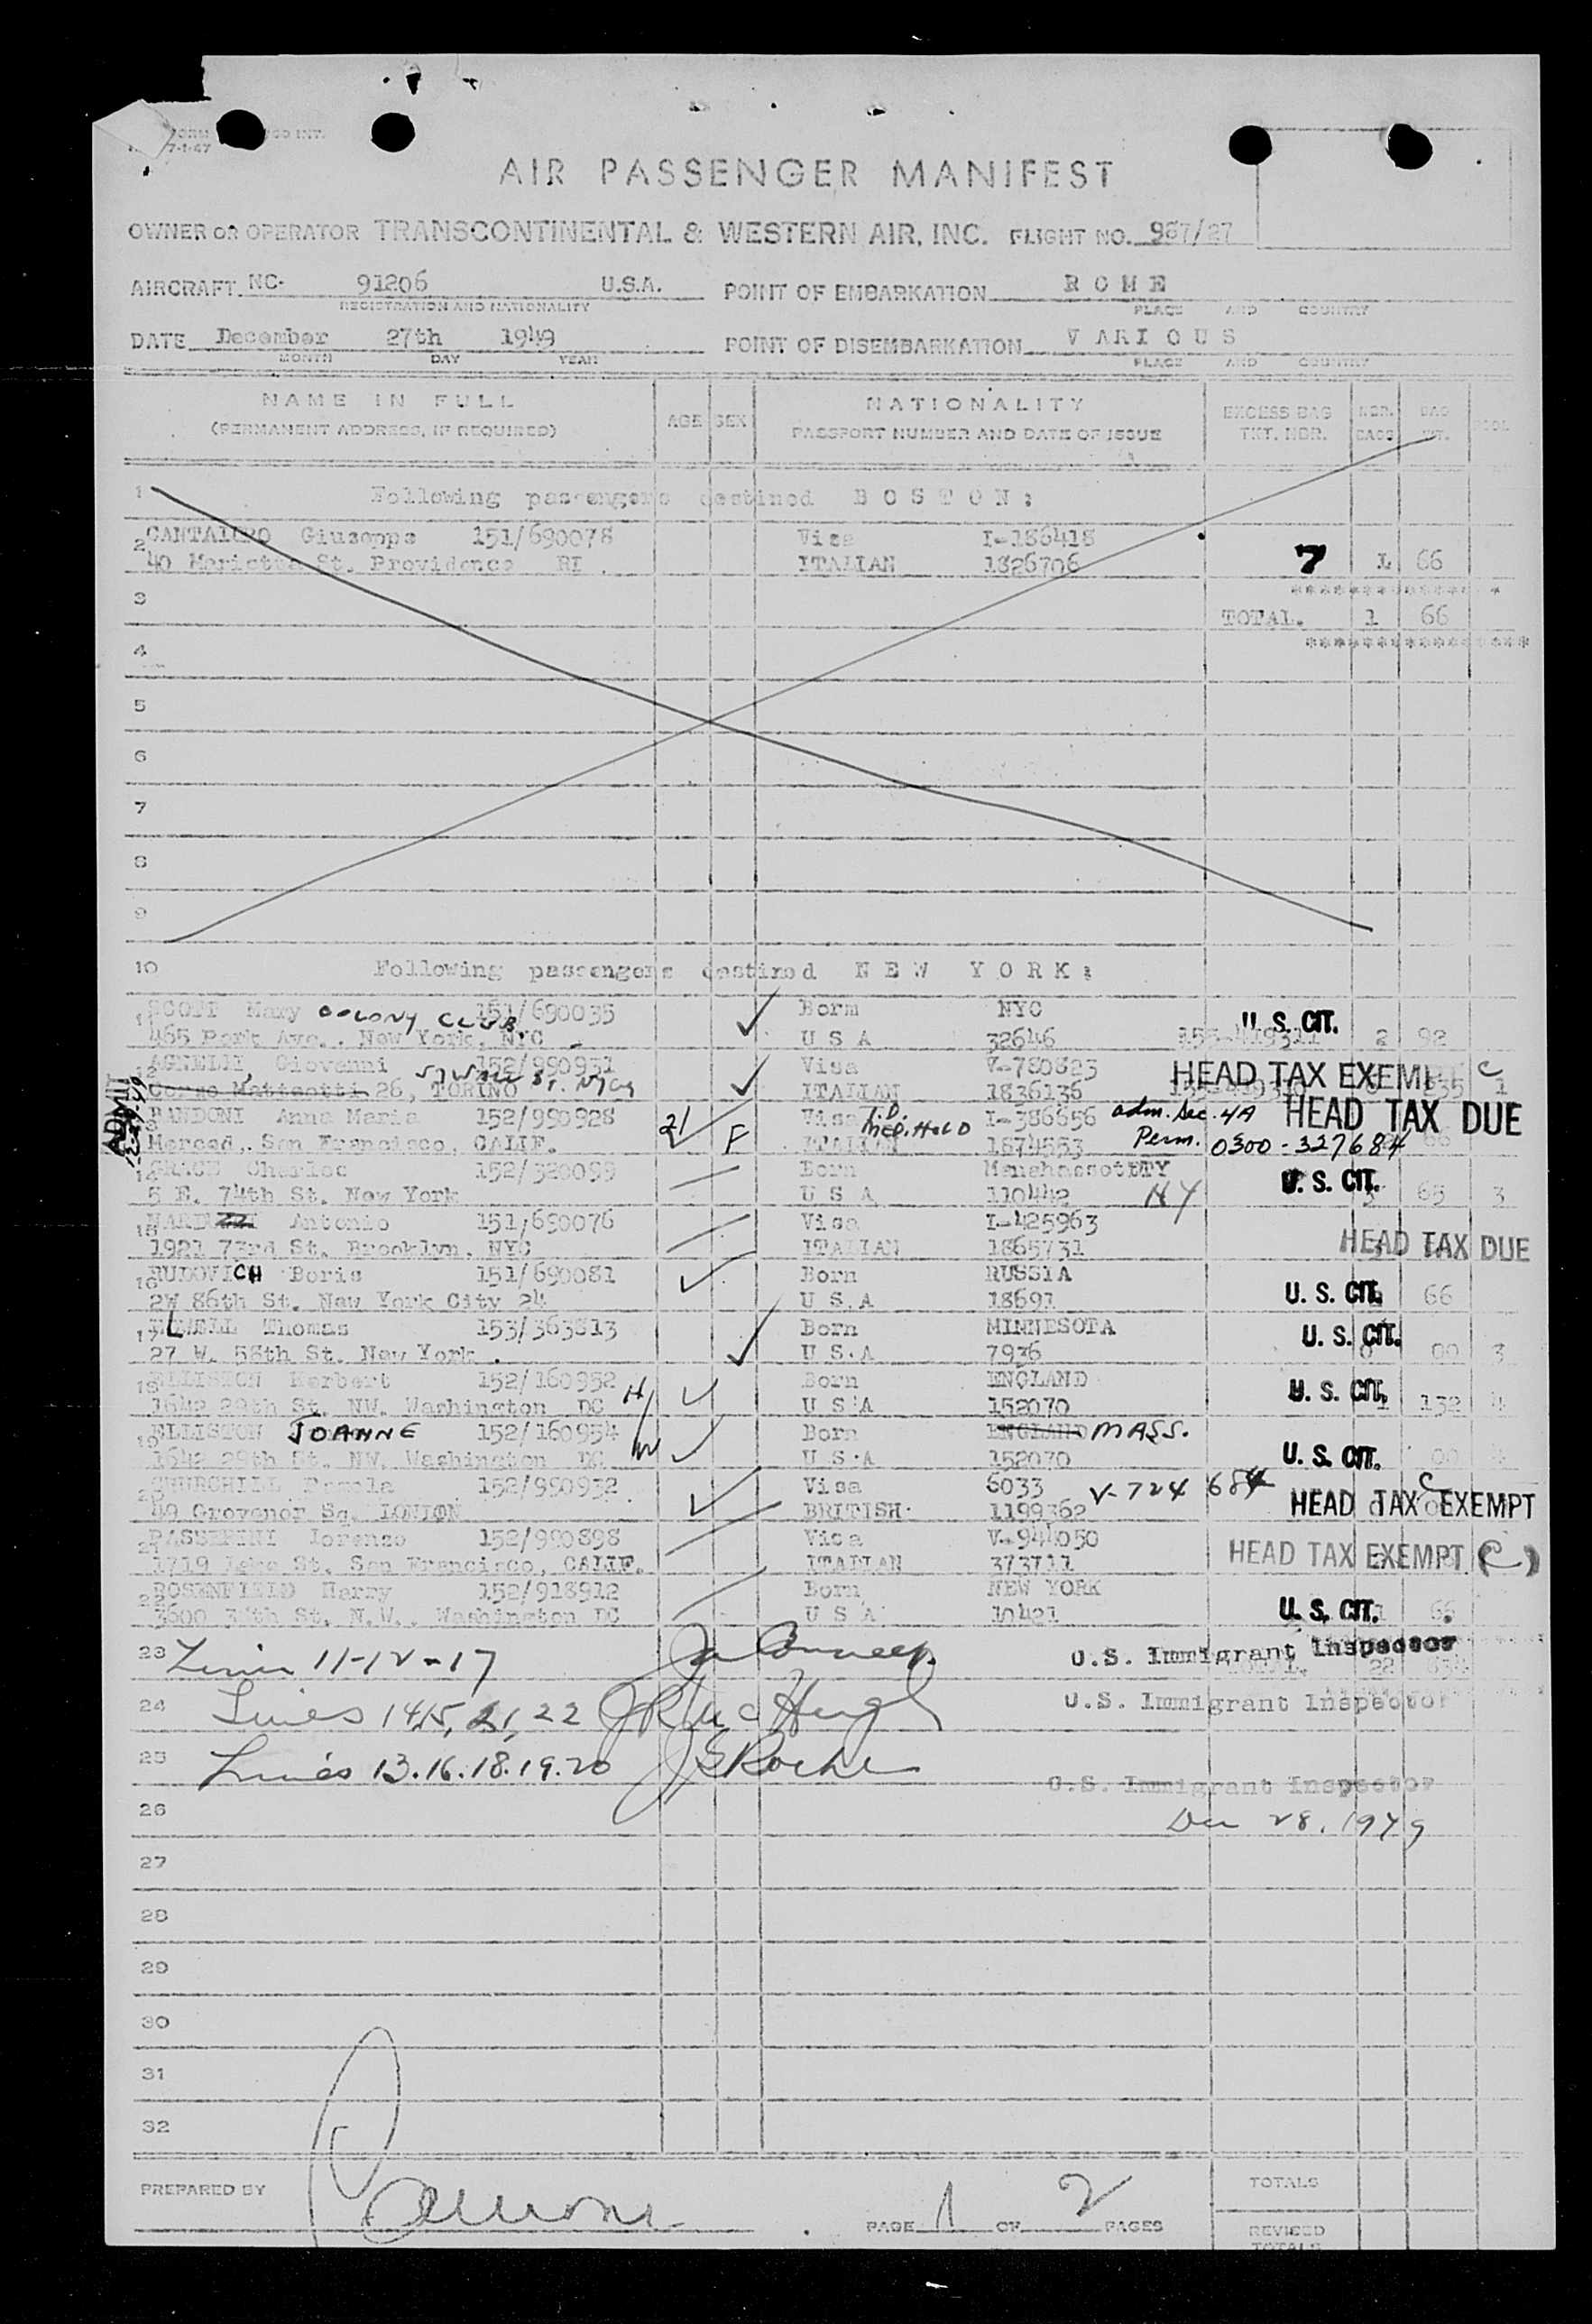 7-1-47
AIR PASSENGER MANIFEST
OWNER OR OPERATOR TRANSCONTINENTAL & WESTERN AIR, INC. FLIGHT NO. 987/27
AIRCRAFT NC- 91206 U.S.A. POINT OF EMBARKATION R O M E
REGISTRATION AND NATIONALITY PLACE AND COUNTRY
DATE December 27th 1949 POINT OF DISEMBARKATION V A R I O U S
MONTH DAY YEAR PLACE AND COUNTRY
NAME IN FULL
(PERMANENT ADDRESS, IF REQUIRED)
AGE SEX
NATIONALITY
PASSPORT NUMBER AND DATE OF ISSUE
EXCESS BAG
TKT. NBR.
NBR.
BAGS
BAG
WT.
1 Following passengers destined B O S T O N :
Giuseppe 151/690078 Visa I-186418
2 40 St. Providence RI. ITALIAN 1826706 7 1 66
3
TOTAL. 1 66
4
5
6
7
8
9
10 Following passengers destined N E W Y O R K :
SCOTT Mary COLONY CLUB 151/690035 Born NYC U. S. CIT.
465 Park Ave., New York, NYC U S A 32646 2 92
AGNELLI, Giovanni 152/990931 Visa V-780823 HEAD TAX EXEMPT C
Corso Matteotti 26, TORINO ITALIAN 1836136 1
ADMIT
BANDONI Anna Maria 152/990928 21 F Visa I-386656 adm. Sec. 4A HEAD TAX DUE
Merced, San Francisco, CALIF. ITALIAN 1874553 Perm. 0300-327684
Charles 152/320099 Born U. S. CIT.
5 E. 74th St. New York U S A 110442 NY 65 3
Antonio 151/690076 Visa I-425963
15 1921 73rd St. Brooklyn, NYC ITALIAN 1865731 HEAD TAX DUE
RUDOVICH Boris 151/690081 Born RUSSIA
16 2W 86th St. New York City 24 U S A 18691 U. S. CIT. 66
Thomas 153/363813 Born MINNESOTA U. S. CIT.
17 27 W. 58th St. New York U S A 7936 00 3
18 ELLISTON Herbert 152/160952 H Born ENGLAND U. S. CIT.
1642 29th St. NW. Washington DC U S A 152070 132 4
19 ELLISTON JOANNE 152/160954 W Born ENGLAND MASS.
1642 29th St. NW. Washington DC U S A 152070 U. S. CIT. 00 4
20 CHURCHILL Pamela 152/990932 Visa 6033 V-724 684 C
49 Grovenor Sq. LONDON BRITISH 1199362 HEAD TAX EXEMPT
21 PASSERINI Lorenzo 152/990898 Visa V-944050
1719 Lake St. San Francisco, CALIF. ITALIAN 373711 HEAD TAX EXEMPT (C)
22 ROSENFIELD Harry 152/918912 Born NEW YORK
St. N.W., Washington DC U S A 10421 U. S. CIT. 66
23 Lines 11-12-17 U.S. Immigrant Inspector
24 Lines 14,15, 21, 22 J R McHugh U.S. Immigrant Inspector
25 Lines 13.16.18.19.20 J S Roche U.S. Immigrant Inspector
26 Dec 28, 1949
27
28
29
30
31
32
PREPARED BY PAGE 1 OF 2 PAGES TOTALS
REVISED
TOTALS